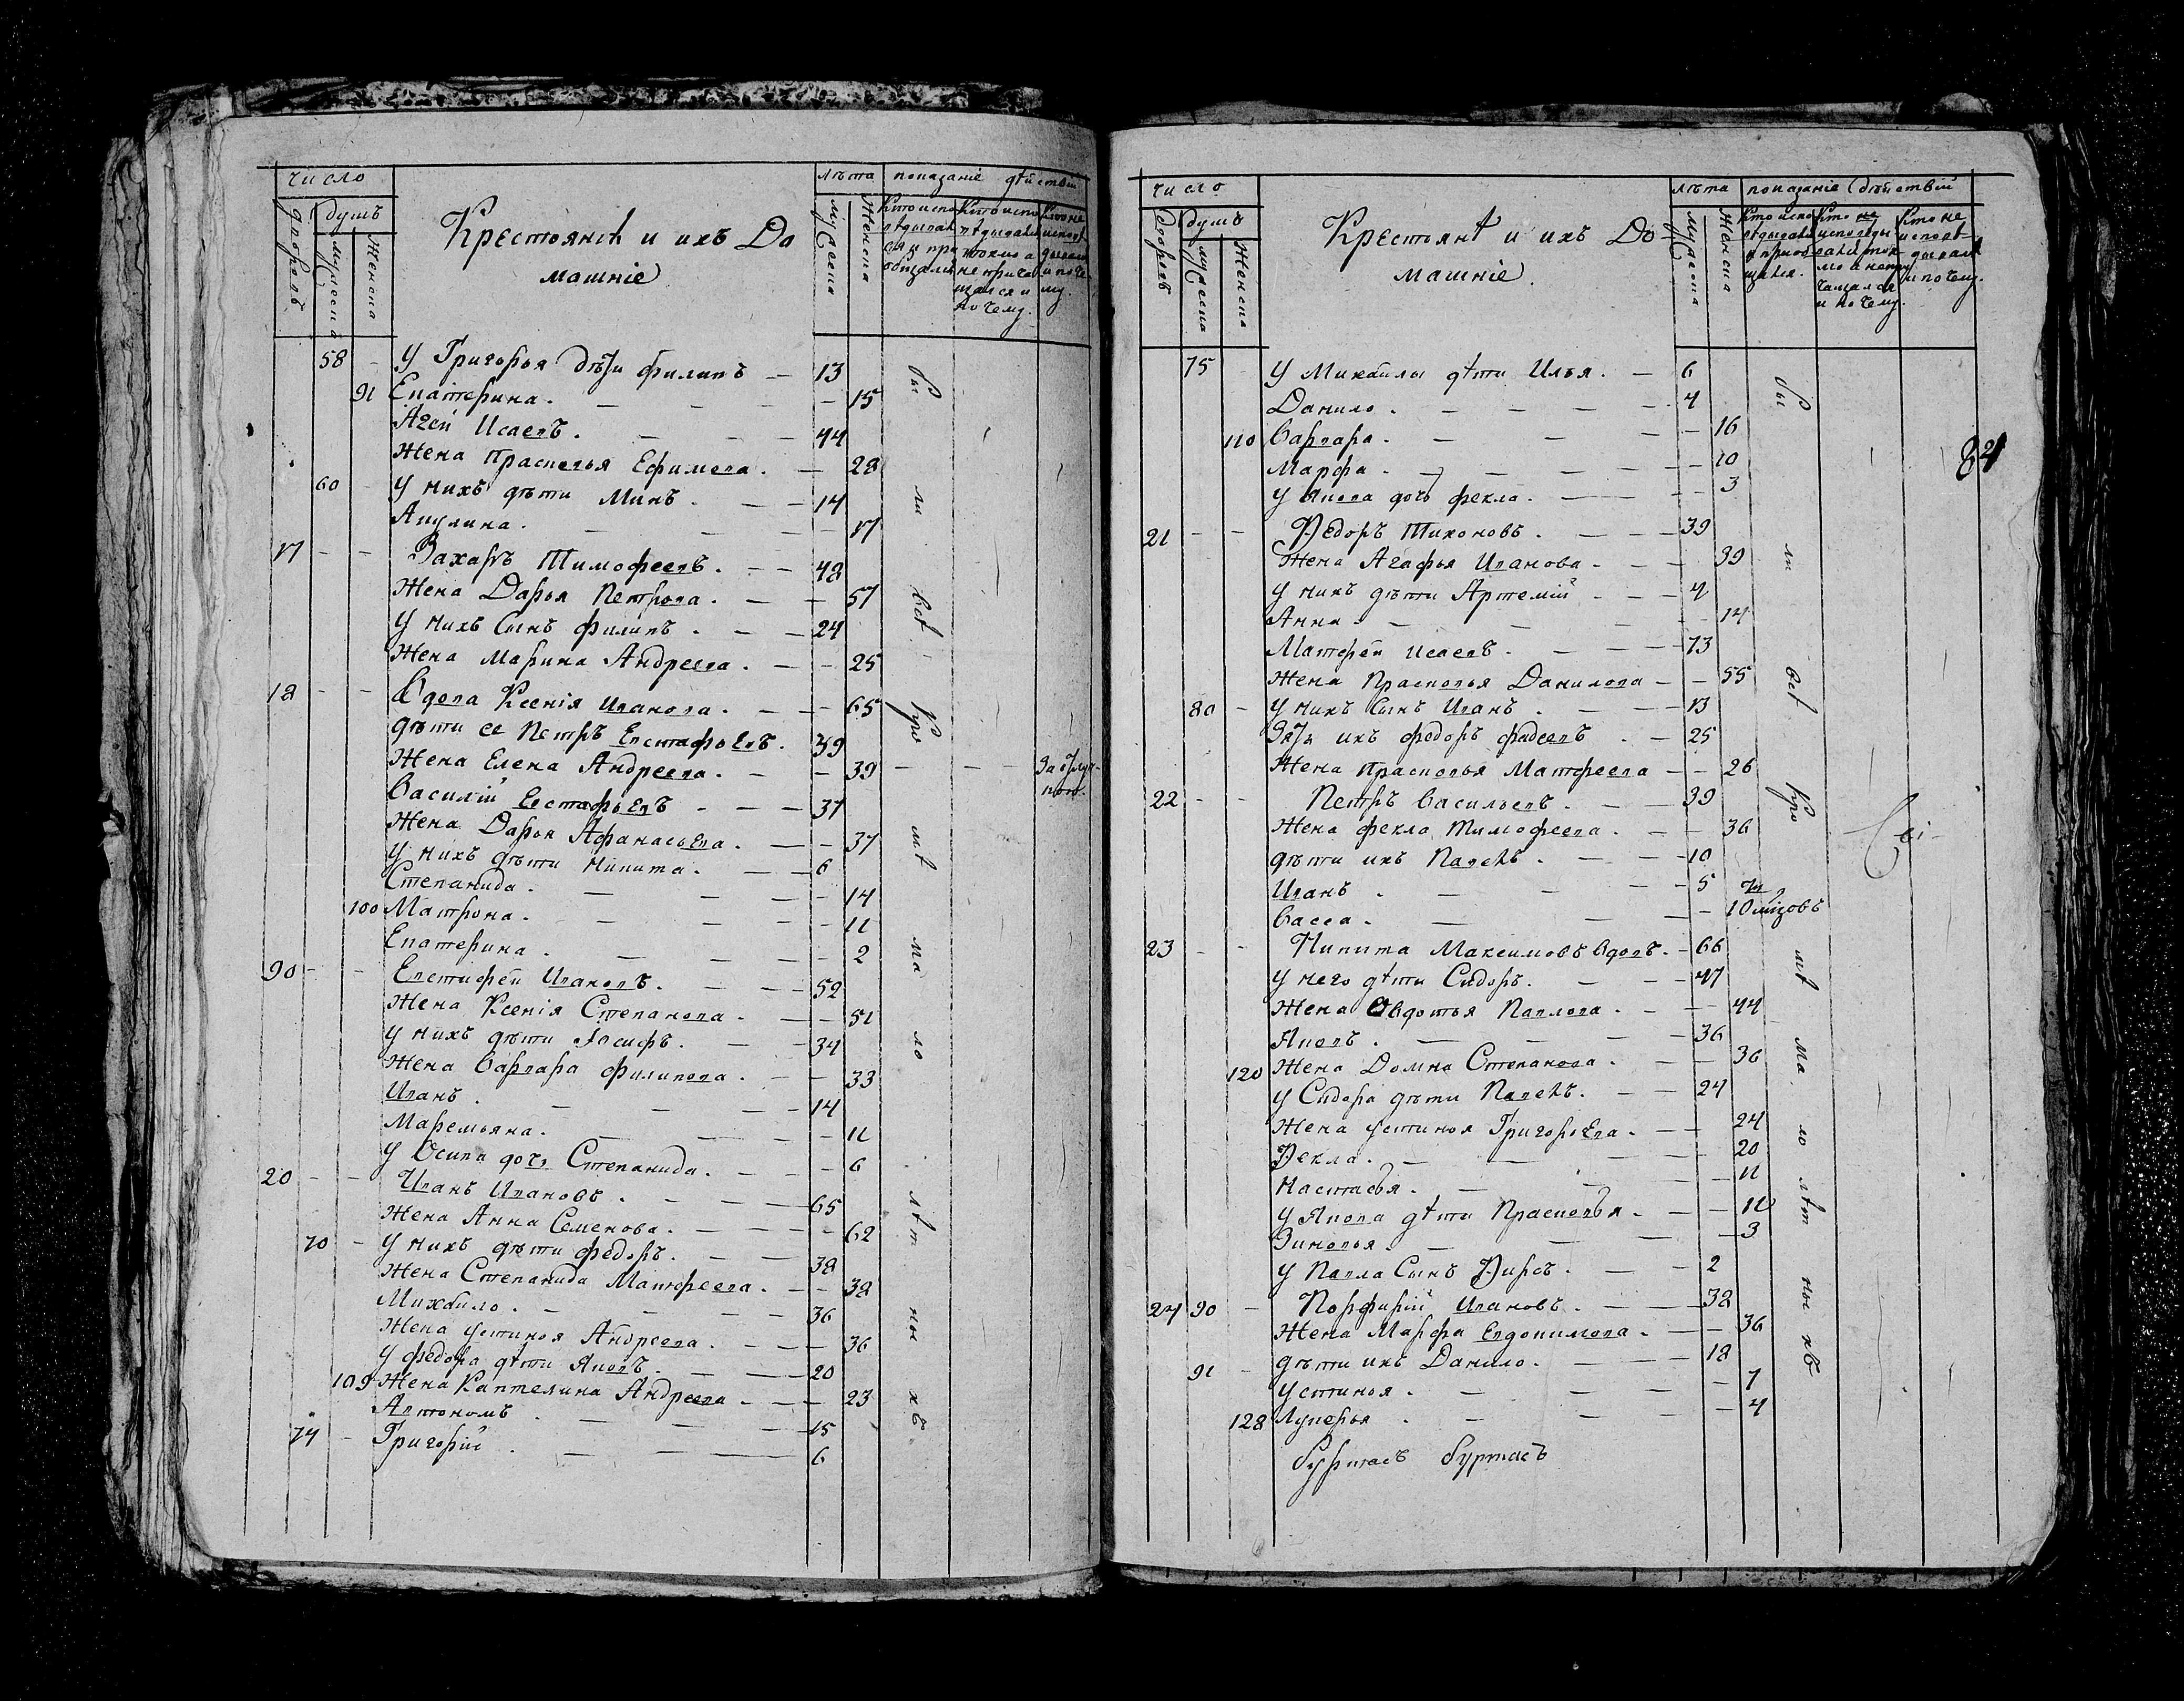 число
лѣта показаніе дѣйствій
дворовъ
душъ
мужеска
женска
Крестьянѣ и ихъ До
машніе
мужеска
женска
58 У Григорья дѣти филипъ 13
91 Екатерина. 15
Агей Исаевъ. 44
Жена Прасковья Ефимова. 28
60 У нихъ дѣти Минъ. 14
Акулина. 17
17 Захаръ Тимофеевъ. 48
Жена Дарья Петрова. 57
У нихъ Сынъ филипъ. 24
Жена Марина Андреева. 25
18 Вдова Ксенія Иванова. 65
дѣти ее Петръ Евстафьевъ. 39
Жена Елена Андреева. 39
Василій Евстафьевъ 37
Жена Дарья Афанасьева. 37
У нихъ дѣти Никита. 6
Степанида. 14
100 Матрона. 11
Екатерина. 2
90 Евстифей Ивановъ. 52
Жена Ксенія Степанова. 51
У нихъ дѣти Іосифъ. 34
Жена Варвара филипова. 33
Иванъ. 14
Маремьяна. 11
У Осипа дочь Степанида. 6
20 Иванъ Ивановъ. 65
Жена Анна Семенова. 62
70 У нихъ дѣти федоръ. 38
Жена Степанида Матфеева. 38
Михайло. 36
Жена Устинья Андреева. 36
У федора дѣти Яковъ. 20
109 Жена Каптелина Андреева 23
Автономъ. 15
74 Григорій. 6
бы
ли
всѣ
про
мѣ
ма
ло
лѣт
ны
хъ
число
лѣта показаніе дѣйствій
дворовъ
душъ
мужеска
женска
Крестьянѣ и ихъ До
машніе.
мужеска
женска
84
75 У Михайлы дѣти Илья. 6
Данило. 4
110 Варвара. 16
Марфа. 10
У Якова дочь фекла. 3
21 Федоръ Тихоновъ. 39
Жена Агафья Иванова. 39
У нихъ дѣти Артемій 4
Анна. 14
Матфей Исаевъ. 73
Жена Прасковья Данилова 55
80 У нихъ Сынъ Иванъ. 13
Зять ихъ федоръ фадеевъ. 25
Жена Прасковья Матфеева 26
22 Петръ Васильевъ. 39
Жена фекла Тимофеева. 36
дѣти ихъ Павелъ. 10
Иванъ. 5
Васса. 10
23 Никита Максимовъ вдовъ. 66
У него дѣти Сидоръ. 47
Жена Овдотья Павлова. 44
Яковъ. 36
120 Жена Домна Степанова. 36
У Сидора дѣти Павелъ. 24
Жена Устинья Григорьева. 24
Фекла. 20
Настасья. 11
У Якова дѣти Прасковья. 10
Зиновья. 3
У Павла Сынъ Фирсъ. 2
24 90 Порфирій Ивановъ. 38
Жена Марфа Евдокимова. 36
91 дѣти ихъ Данило. 18
Устинья. 7
128 Лукерья. 4
Буртасъ Буртасъ
бы
ли
всѣ
про
мѣ
ма
ло
лѣт
ны
хъ